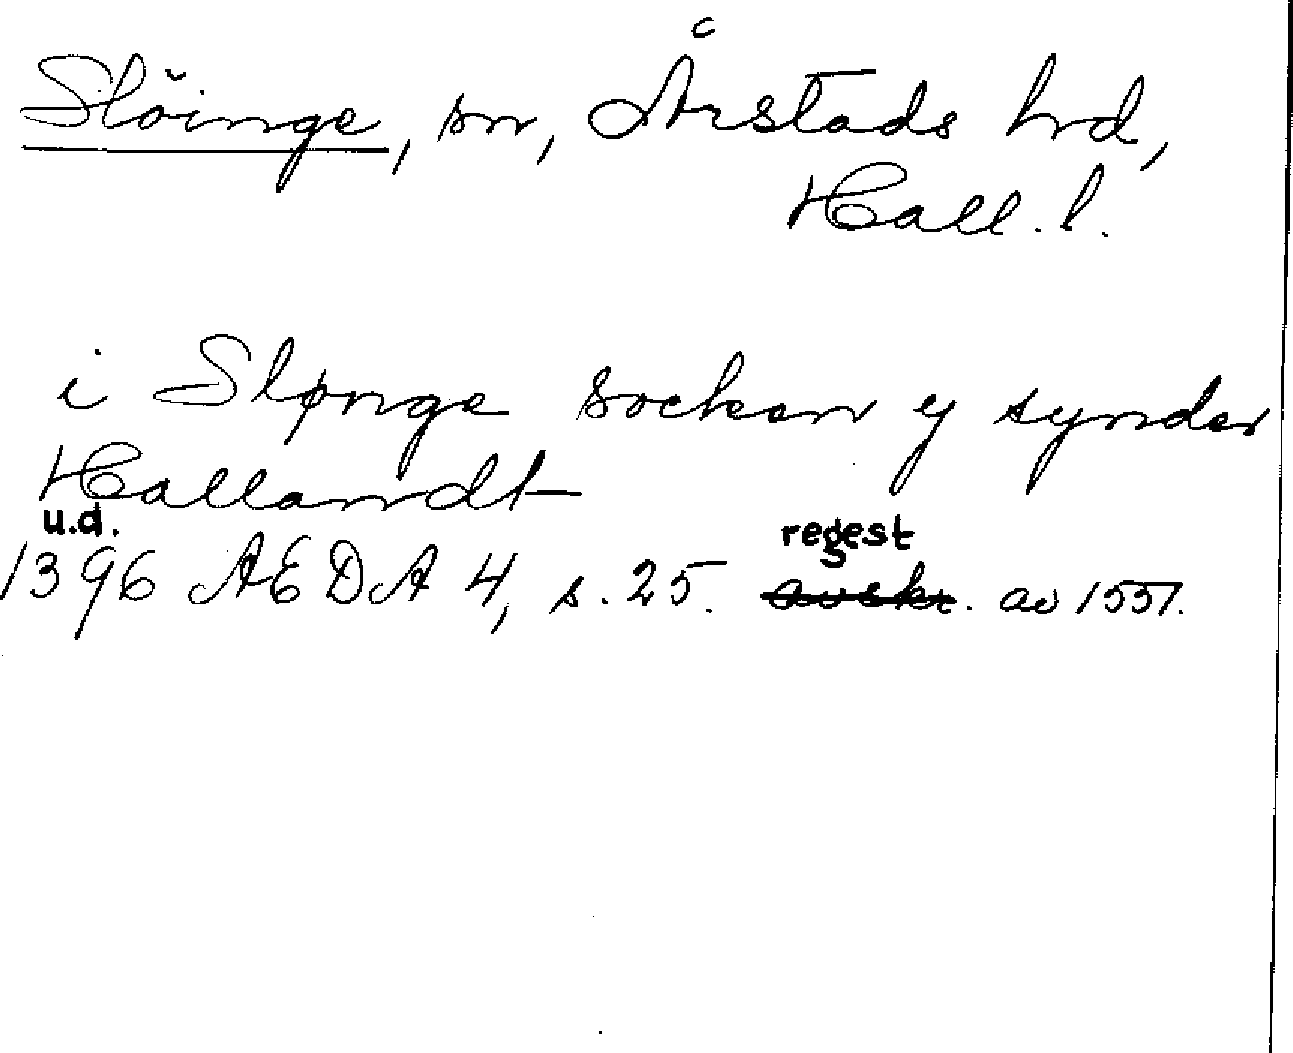 Slöinge, sn, Årstads hrd,
Hall. l.
i Slønge socken y synder
Hallandt
u.d.
regest
1396 AEDA 4, s. 25. avskr. av 1551.